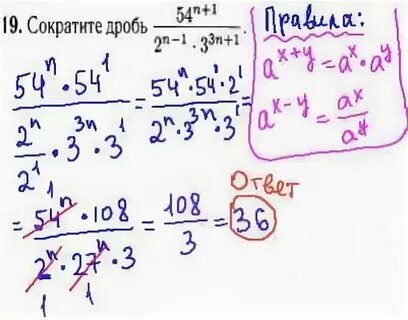 19. Сократите дробь 54^{n+1} / (2^{n−1} · 3^{3n+1}).
Правила:
a^{x+y} = a^x · a^y
a^{x−y} = a^x / a^y
(54^n · 54^1) / ((2^n / 2^1) · 3^{3n} · 3^1) = (54^n · 54^1 · 2^1) / (2^n · 3^{3n} · 3^1) =
= (54^n · 108) / (2^n · 27^n · 3) = 108 / 3 = 36
1 1
Ответ